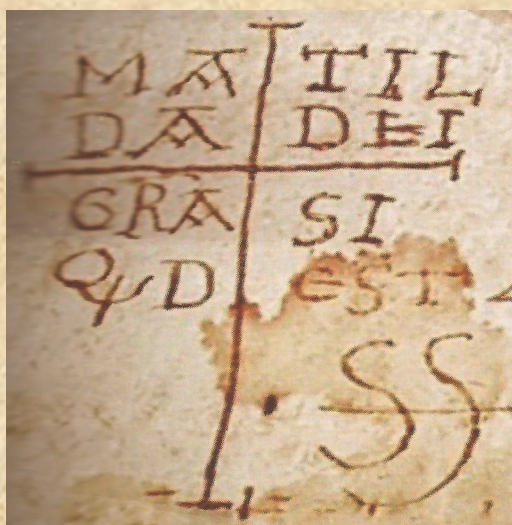 MA TIL
DA DEI
GRA SI
QVD EST
SS